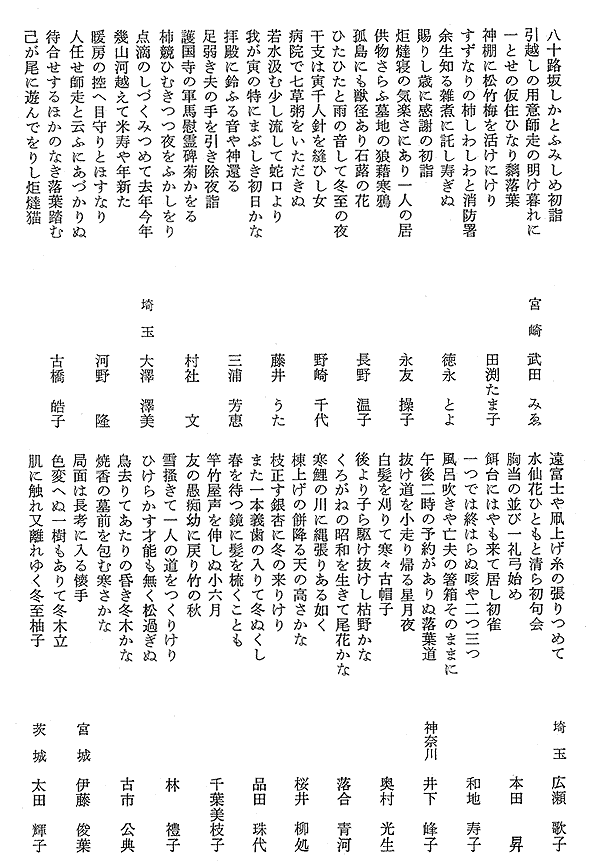 八十路坂しかとふみしめ初詣
引越しの用意師走の明け暮れに
一とせの仮住ひなり鵜落葉
神棚に松竹梅を活けにけり
すずなりの柿しわしわと消防署
余生知る雑煮に託し寿ぎぬ
賜りし歳に感謝の初詣
炬燵寝の気楽さにあり一人の居
供物さらふ墓地の狼藉寒鴉
孤島にも獣径あり石蕗の花
ひたひたと雨の音して冬至の夜
干支は寅千人針を縫ひし女
病院で七草粥をいただきぬ
若水汲む少し流して蛇口より
我が寅の特にまぶしき初日かな
拝殿に鈴ふる音や神還る
足弱き夫の手を引き除夜詣
護国寺の軍馬慰霊碑菊かをる
柿競ひむきつつ夜をふかしをり
点滴のしづくみつめて去年今年
幾山河越えて米寿や年新た
暖房の控へ目守りとほすなり
人任せ師走と云ふにあづかりぬ
待合せするほかのなき落葉踏む
己が尾に遊んでをりし炬燵猫
宮崎 武田 みゑ
田渕たま子
徳永 とよ
永友 操子
長野 温子
野崎 千代
藤井 うた
三浦 芳恵
村社 文
埼玉 大澤 澤美
河野 隆
古橋 皓子
遠富士や凧上げ糸の張りつめて
水仙花ひともと清ら初句会
胸当の並び一礼弓始め
餌台にはやも来て居し初雀
一つでは終はらぬ咳や二つ三つ
風呂吹きや亡夫の箸箱そのままに
午後二時の予約がありぬ落葉道
抜け道を小走り帰る星月夜
白髪を刈りて寒々古帽子
後より子ら駆け抜けし枯野かな
くろがねの昭和を生きて尾花かな
寒鯉の川に縄張りある如く
棟上げの餅降る天の高さかな
枝正す銀杏に冬の来りけり
また一本義歯の入りて冬ぬくし
春を待つ鏡に髪を梳くことも
竿竹屋声を伸しぬ小六月
友の愚痴幼に戻り竹の秋
雪掻きて一人の道をつくりけり
ひけらかす才能も無く松過ぎぬ
鳥去りてあたりの昏き冬木かな
焼香の墓前を包む寒さかな
局面は長考に入る懐手
色変へぬ一樹もありて冬木立
肌に触れ又離れゆく冬至柚子
埼玉 広瀬 歌子
本田 昇
和地 寿子
神奈川 井下 峰子
奥村 光生
落合 青河
桜井 柳処
品田 珠代
千葉美枝子
林 禮子
古市 公典
宮城 伊藤 俊葉
茨城 太田 輝子